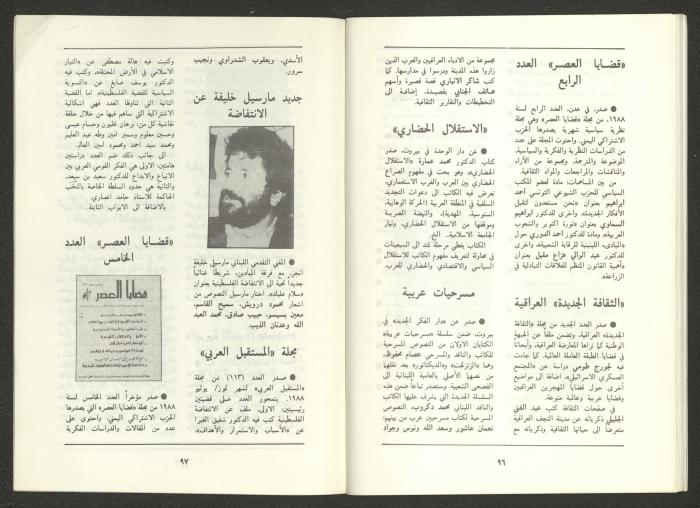 «قضايا العصر» العدد
الرابع
● صدر، في عدن، العدد الرابع لسنة
١٩٨٨، من مجلة «قضايا العصر» وهي مجلة
نظرية سياسية شهرية يصدرها الحزب
الاشتراكي اليمني، واحتوت المجلة على عدد
من الدراسات النظرية والفكرية والسياسية،
الموضوعة والمترجمة، ومجموعة من الآراء
والمناقشات والمراجعات والمواد الثقافية.
من بين المساهمات: مادة لعضو المكتب
السياسي للحزب الشيوعي التونسي أحمد
ابراهيم بعنوان «نحن مستعدون لتقبل
الأفكار الجديدة»، واخرى للدكتور ابراهيم
السماوي بعنوان «ثورة اكتوبر والشعوب
العربية»، ومادة للدكتور أحمد الدوري حول
«المبادىء اللينينية للرقابة الشعبية»، واخرى
للدكتور عبد الوالي هزاع مقبل بعنوان
«أهمية القانون المنظم للعلاقات التبادلية في
الزراعة».
«الثقافة الجديدة» العراقية
● صدر العدد الجديد من مجلة «الثقافة
الجديدة» العراقية، وتضمن ملفاً عن الجبهة
الوطنية كما تراها المعارضة العراقية، وأبحاثا
في قضايا الطبقة العاملة العالمية. كما جاءت
فيه لجورج طوسي دراسة عن «المجتمع
العسكري الاسرائيلي»، اضافة الى مواضيع
أخرى حول قضايا المهجرين العراقية
وقضايا عربية وعالمية متنوعة.
في صفحات الثقافة كتب عبد الغني
الخليلي ذكرياته عن مدينة النجف العراقية
متعرضاً الى حياتها الثقافية وذكرياته مع
مجموعة من الادباء العراقيين والعرب الذين
زاروا هذه المدينة ودرسوا في مدارسها. كما
كتب شاكر الانباري قصة قصيرة وأسهم
هاتف الجنابي بقصيدة، إضافة الى
التخطيطات والتقارير الثقافية.
«الاستقلال الحضاري»
● عن دار الوحدة في بيروت، صدر
كتاب الدكتور محمد عمارة «الاستقلال
الحضاري»، وهو بحث في مفهوم الصراع
الحضاري بين العرب والغرب الاستعماري،
تعرض فيه الكاتب الى دعوات التجديد
السلفية في المنطقة العربية (الحركة الوهابية،
السنوسية، المهدية)، والنهضة المصرية
وموقفها من الاستقلال الحضاري، وتيار
الجامعة الاسلامية.. الخ.
الكتاب يغطي مرحلة تمتد الى السبعينات
في محاولة لتعريف مفهوم الكاتب للاستقلال
السياسي والاقتصادي والحضاري للعرب.
مسرحيات عربية
● صدر عن «دار الفكر الجديد» في
بيروت، ضمن سلسلة «مسرحيات عربية»
الكتابان الاولان من النصوص المسرحية
للكاتب والناقد والمسرحي عصام محفوظ،
وهما «الزنزلخت» و«الديكتاتور» بعد نقلهما
من نصهما الأصلي بالعامية اللبنانية الى
الفصحى الشعبية. وستصدر تباعاً ضمن هذه
السلسلة الجديدة التي يشرف عليها الكاتب
والناقد اللبناني محمد دكروب، النصوص
المسرحية لكتاب مسرحيين عرب من بينهم:
نعمان عاشور وسعد الله ونوس وجواد
٩٦
الأسدي، ويعقوب الشدراوي ونجيب
سرور.
جديد مارسيل خليفة عن
الانتفاضة
● المغني التقدمي اللبناني مارسيل خليفة
انجز مع فرقة الميادين، شريطاً غنائياً
جديداً تحية الى الانتفاضة الفلسطينية بعنوان
«سلام عليك». اختار مارسيل النصوص من
اشعار محمود درويش، سميح القاسم،
معين بسيسو، حبيب صادق، محمد العبد
الله وعدنان اللبد.
مجلة «المستقبل العربي»
● صدر العدد (١١٣) من مجلة
«المستقبل العربي» لشهر تموز/ يوليو
١٩٨٨. يتمحور العدد على قضيتين
رئيسيتين، الاولى، ملف عن الانتفاضة
الفلسطينية كتب فيه الدكتور شفيق الغبرا
عن «الأسباب والاستمرار والأهداف»،
وكتبت فيه هالة مصطفى عن «التيار
الاسلامي في الأرض المحتلة»، وكتب فيه
الدكتور يوسف صايغ عن «التسوية
السياسية للقضية الفلسطينية». اما القضية
الثانية التي تناولها العدد فهي اشكالية
الاشتراكية التي ساهم فيها من خلال حلقة
نقاشية كل من: برهان غليون وحسام عيسى
وحسين معلوم وسمير امين وطه عبد العليم
ومحمد سيد أحمد ومحمود امين العالم.
الى جانب ذلك ضم العدد دراستين
هامتين، الاولى هي الفكر القومي العربي بين
الاتباع والابداع للدكتور سعيد بن سعيد،
والثانية هي حدود السلطة الخاصة بالنخب
الحاكمة للاستاذ حامد انصاري.
بالاضافة الى الابواب الثابتة.
«قضايا العصر» العدد
الخامس
قضايا العصر
● صدر مؤخراً العدد الخامس لسنة
١٩٨٨ من مجلة «قضايا العصر» التي يصدرها
الحزب الاشتراكي اليمني، واحتوى على
عدد من المقالات والدراسات الفكرية
٩٧